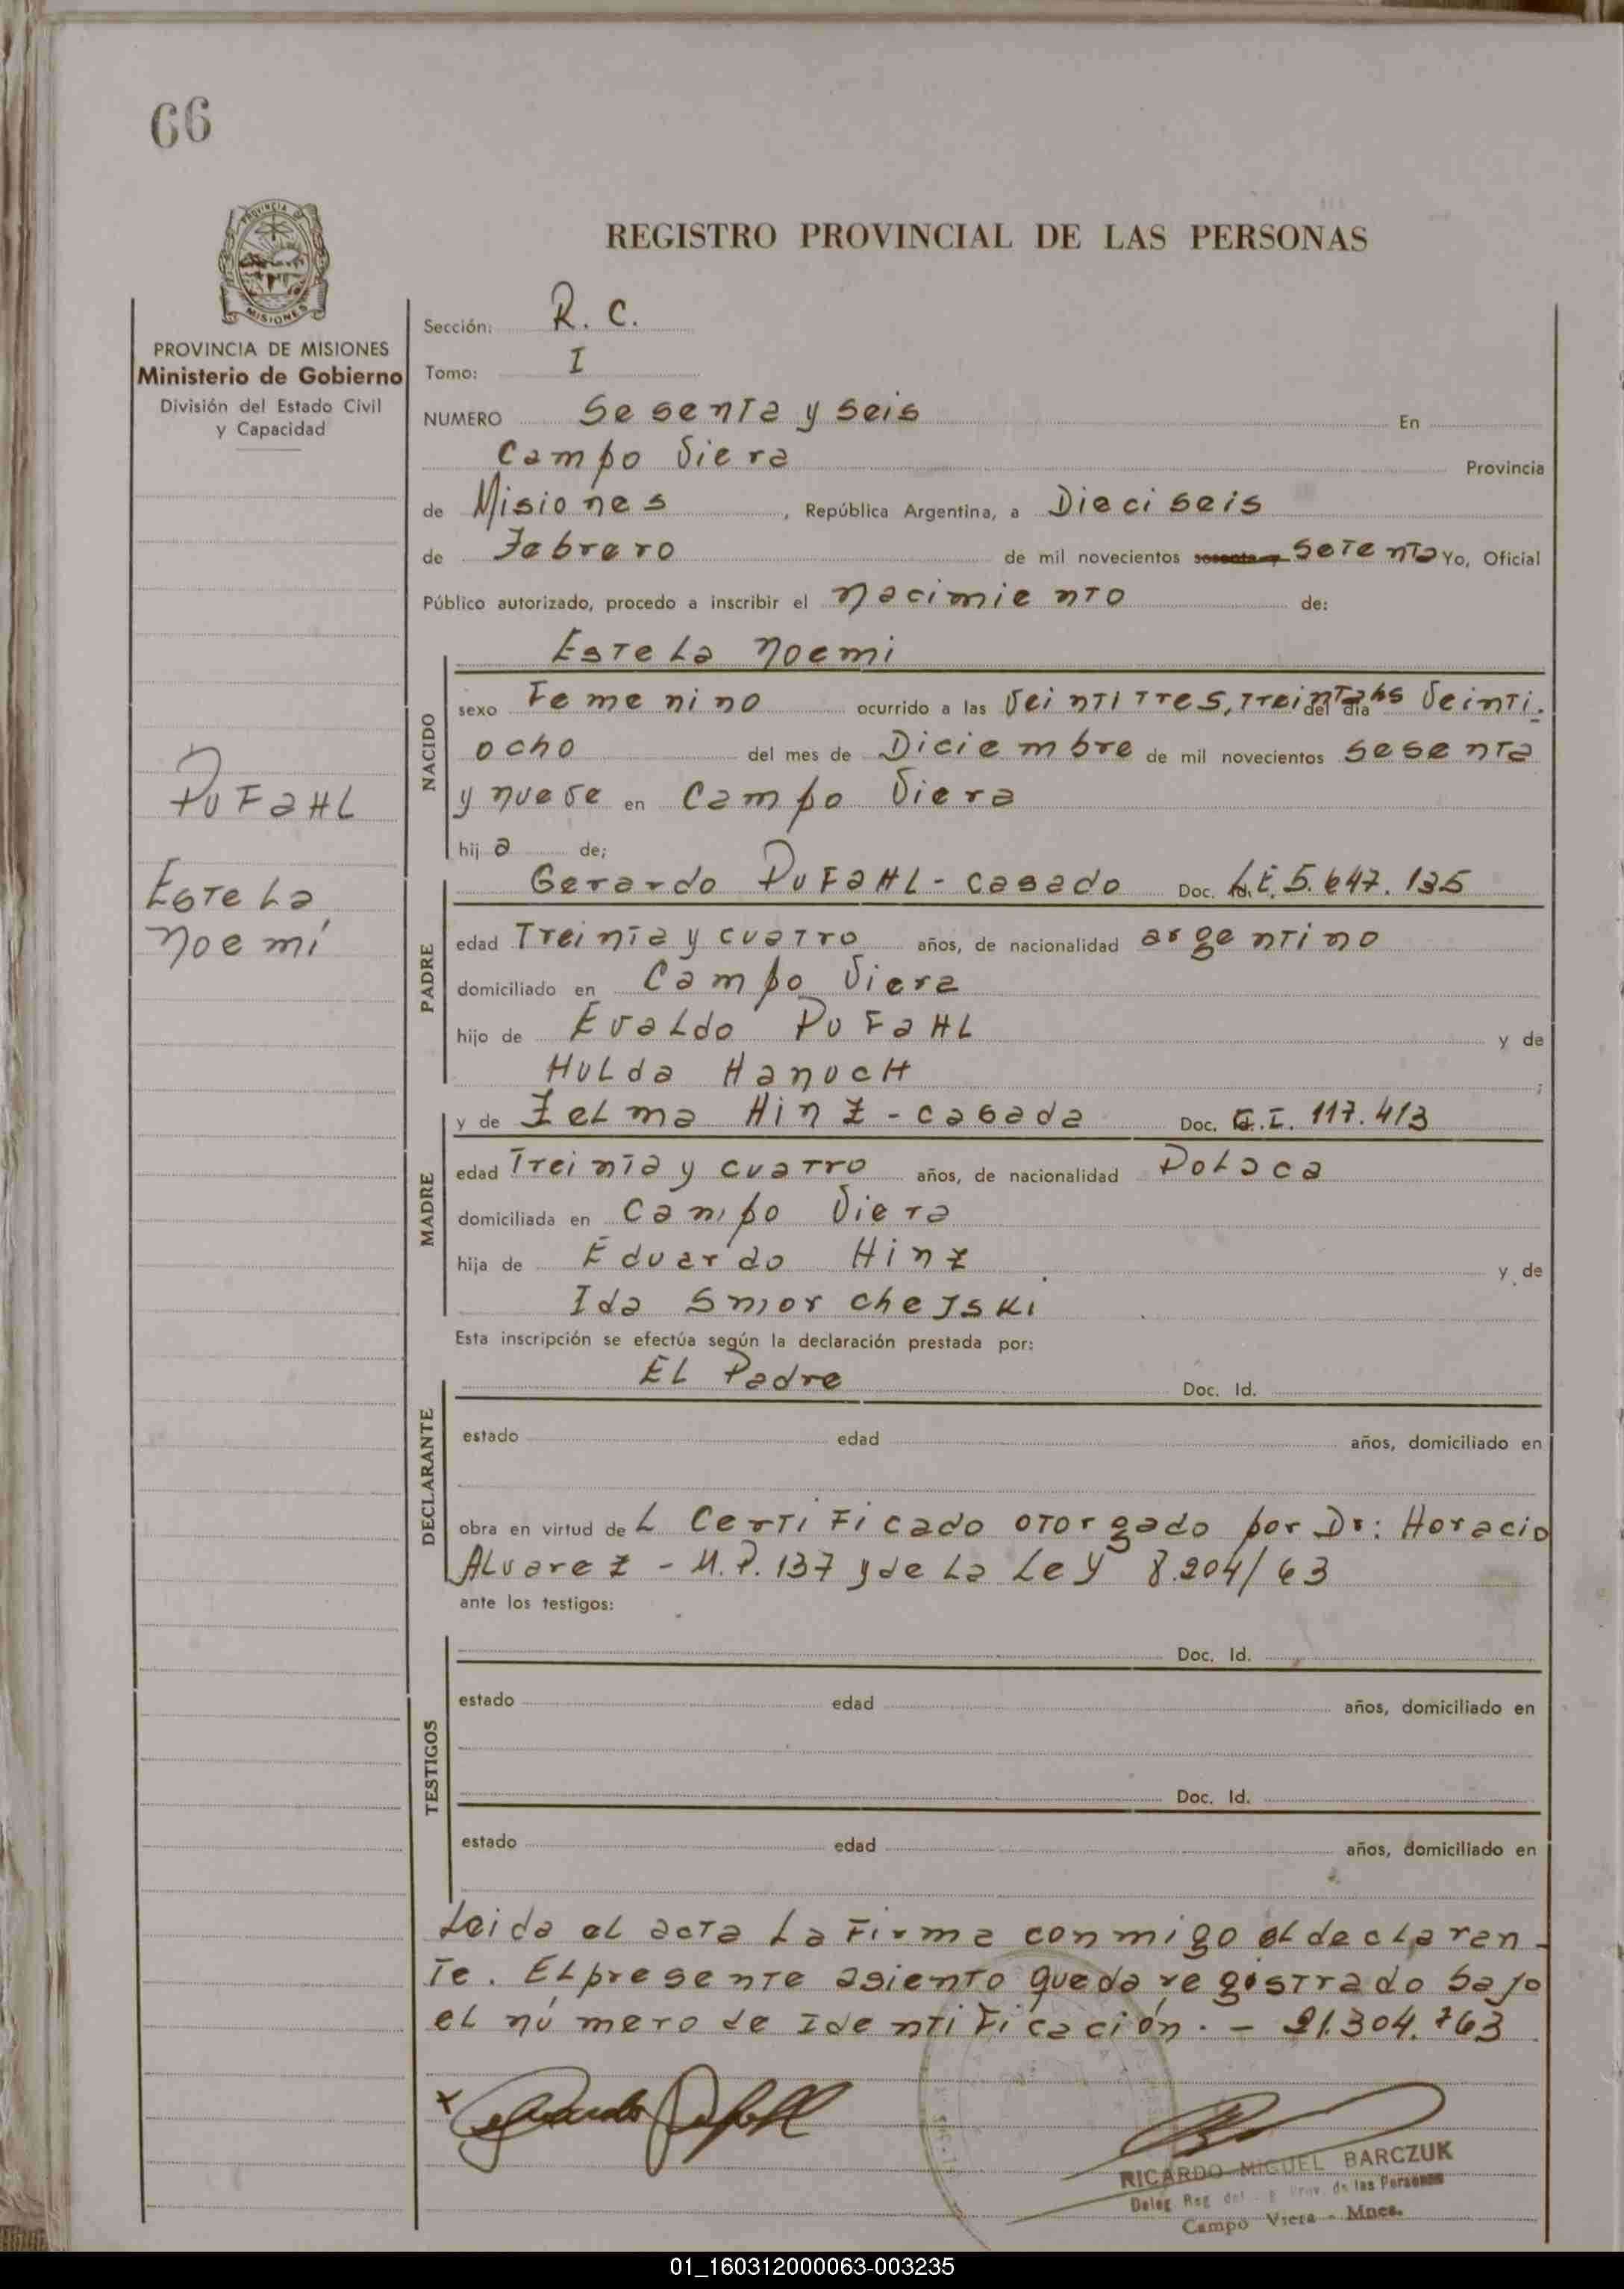 66
PROVINCIA DE
MISIONES
REGISTRO PROVINCIAL DE LAS PERSONAS
PROVINCIA DE MISIONES
Ministerio de Gobierno
División del Estado Civil
y Capacidad
Sección: R. C.
Tomo: I
NUMERO Sesenta y seis En
Campo Viera Provincia
de Misiones, República Argentina, a Dieciseis
de Febrero de mil novecientos sesenta y Setenta Yo, Oficial
Público autorizado, procedo a inscribir el nacimiento de:
Estela Noemi
NACIDO
sexo Femenino ocurrido a las Veintitres, treinta hs del día Veinti-
ocho del mes de Diciembre de mil novecientos sesenta
y nueve en Campo Viera
hija de;
PUFAHL
Estela
Noemí
PADRE
Gerardo PUFAHL - casado Doc. L.E. 5.647.135
edad Treinta y cuatro años, de nacionalidad argentino
domiciliado en Campo Viera
hijo de Evaldo PUFAHL y de
Hulda Hanuch;
MADRE
y de Zelma Hinz - casada Doc. C.I. 117.413
edad Treinta y cuatro años, de nacionalidad Polaca
domiciliada en Campo Viera
hija de Eduardo Hinz y de
Ida Smorchejski
Esta inscripción se efectúa según la declaración prestada por:
DECLARANTE
El Padre Doc. Id.
estado edad años, domiciliado en
obra en virtud del Certificado otorgado por Dr: Horacio
Alvarez - M.P. 137 y de la Ley 8.204/63
ante los testigos:
TESTIGOS
Doc. Id.
estado edad años, domiciliado en
Doc. Id.
estado edad años, domiciliado en
Leida el acta la Firma conmigo el declaran-
te. El presente asiento queda registrado bajo
el número de Identificación. - 21.304.763
x Gerardo Pufahl
RICARDO MIGUEL BARCZUK
Deleg. Reg. del Prov. de las Personas
Campo Viera - Mnes.
01_160312000063-003235